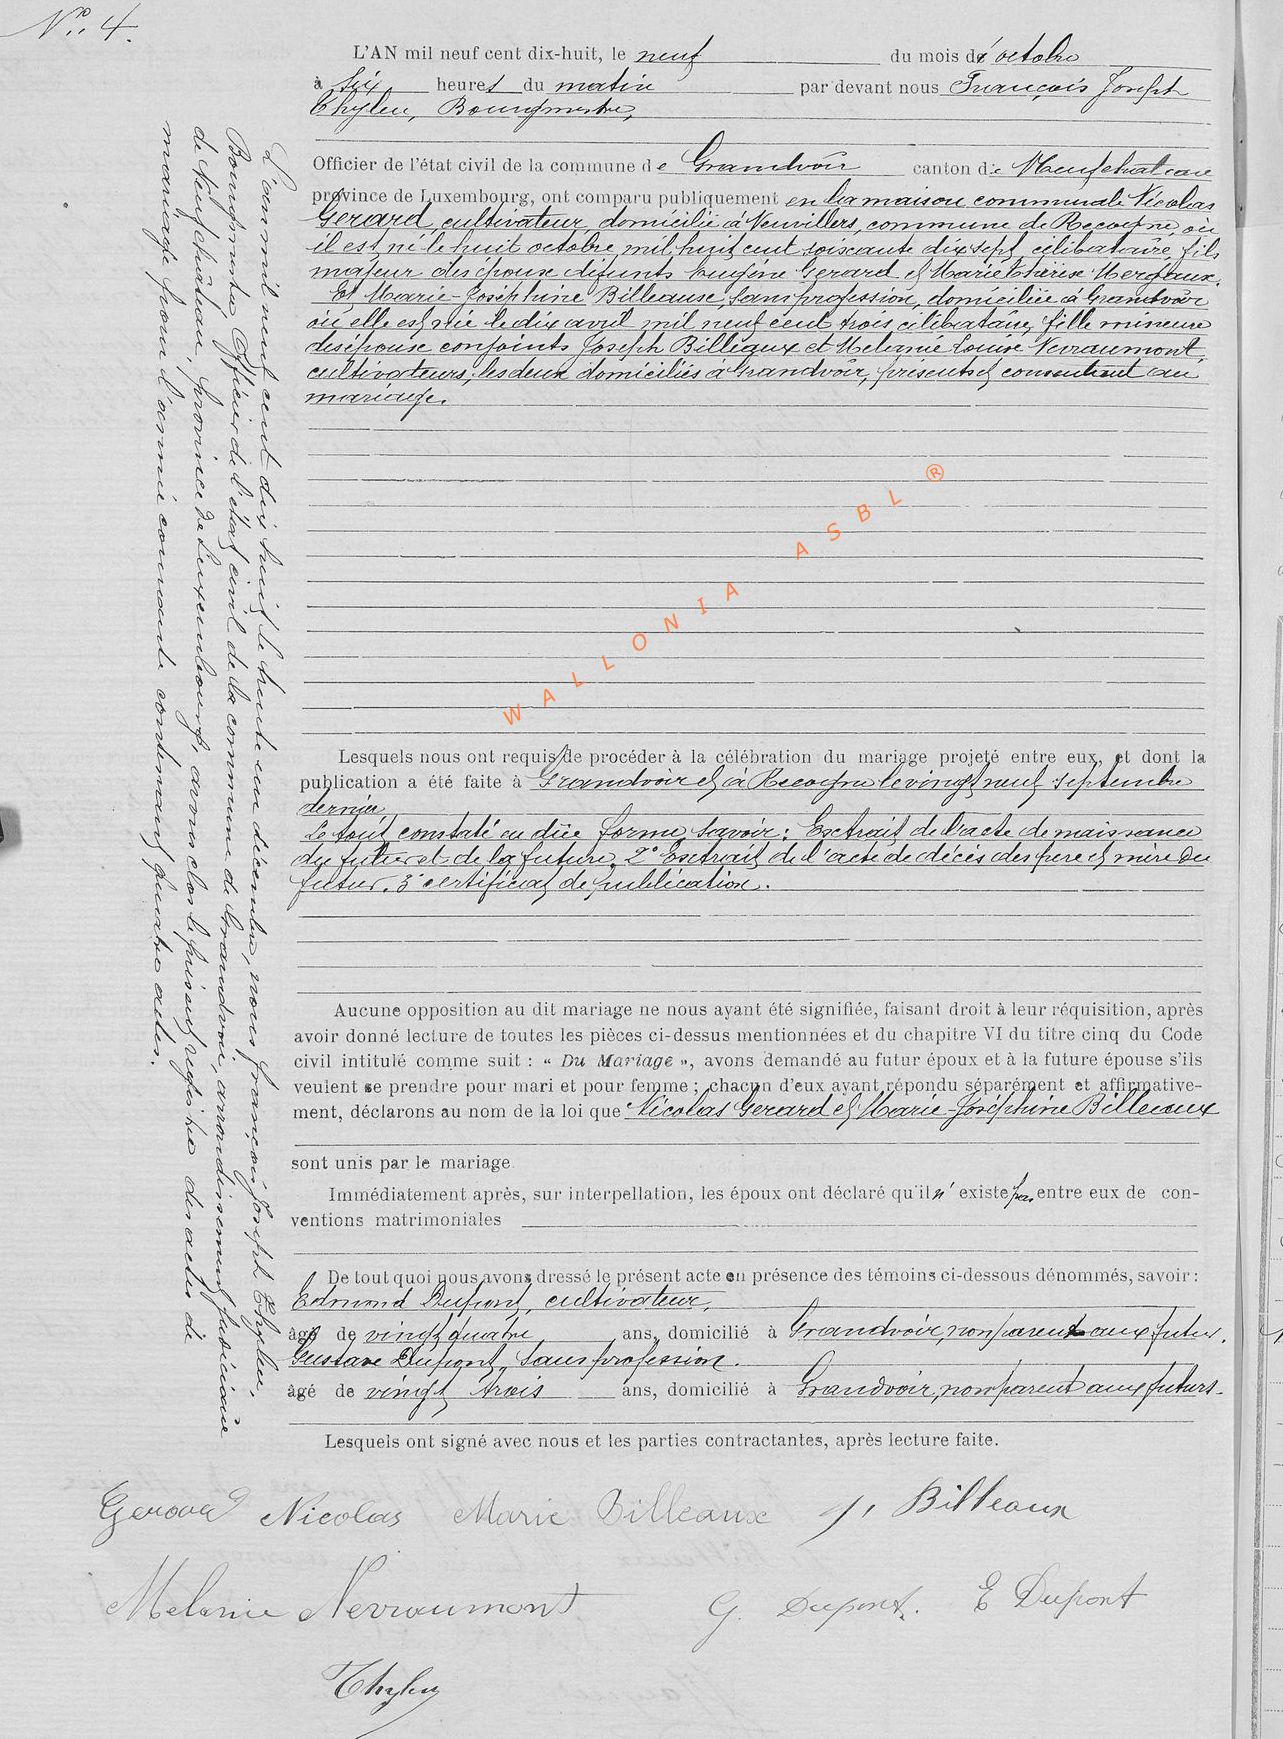 N° 4.
L'AN mil neuf cent dix-huit, le neuf du mois d'octobre
à six heures du matin par devant nous François Joseph
Thyleu, Bourgmestre,
Officier de l'état civil de la commune de Grandvoir canton de Neufchateau
province de Luxembourg, ont comparu publiquement en la maison communale Nicolas
Gerard, cultivateur domicilié à Neuvillers, commune de Recogne, où
il est né le huit octobre mil huit cent soixante dix sept, célibataire, fils
majeur des époux défunts Eugène Gerard et Marie Thérèse Mergeaux.
Et Marie-Joséphine Billeaux, sans profession, domiciliée à Grandvoir
où elle est née le dix avril mil neuf cent trois célibataire, fille mineure
des époux conjoints Joseph Billeaux et Mélanie Louise Nevraumont,
cultivateurs, les deux domiciliés à Grandvoir, présents et consentant au
mariage.
WALLONIA ASBL ®
Lesquels nous ont requis de procéder à la célébration du mariage projeté entre eux, et dont la
publication a été faite à Grandvoir et à Recogne le vingt neuf septembre
dernier
Le tout constaté en due forme, savoir : Extrait de l'acte de naissance
du futur et de la future. 2° Extrait de l'acte de décès des père et mère du
futur. 3° certificat de publication.
Aucune opposition au dit mariage ne nous ayant été signifiée, faisant droit à leur réquisition, après
avoir donné lecture de toutes les pièces ci-dessus mentionnées et du chapitre VI du titre cinq du Code
civil intitulé comme suit : « Du Mariage », avons demandé au futur époux et à la future épouse s'ils
veulent se prendre pour mari et pour femme ; chacun d'eux ayant répondu séparément et affirmative-
ment, déclarons au nom de la loi que Nicolas Gerard et Marie-Joséphine Billeaux
sont unis par le mariage
Immédiatement après, sur interpellation, les époux ont déclaré qu'il n'existe pas entre eux de con-
ventions matrimoniales
De tout quoi nous avons dressé le présent acte en présence des témoins ci-dessous dénommés, savoir :
Edmond Dupont, cultivateur,
âgé de vingt quatre ans, domicilié à Grandvoir, non parent aux futur.
Gustave Dupont, sans profession.
âgé de vingt trois ans, domicilié à Grandvoir, non parent aux futurs.
Lesquels ont signé avec nous et les parties contractantes, après lecture faite.
Gerard Nicolas Marie Billeaux J. Billeaux
Melanie Nevraumont G. Dupont. E Dupont
Thyleu
L'an mil neuf cent dix huit le trente un décembre, nous François Joseph Thyleu,
Bourgmestre Officier de l'état civil de la commune de Grandvoir, arrondissement judiciaire
de Neufchâteau, province de Luxembourg, avons clos le présent registre des actes de
mariage pour l'année courante contenant quatre actes.